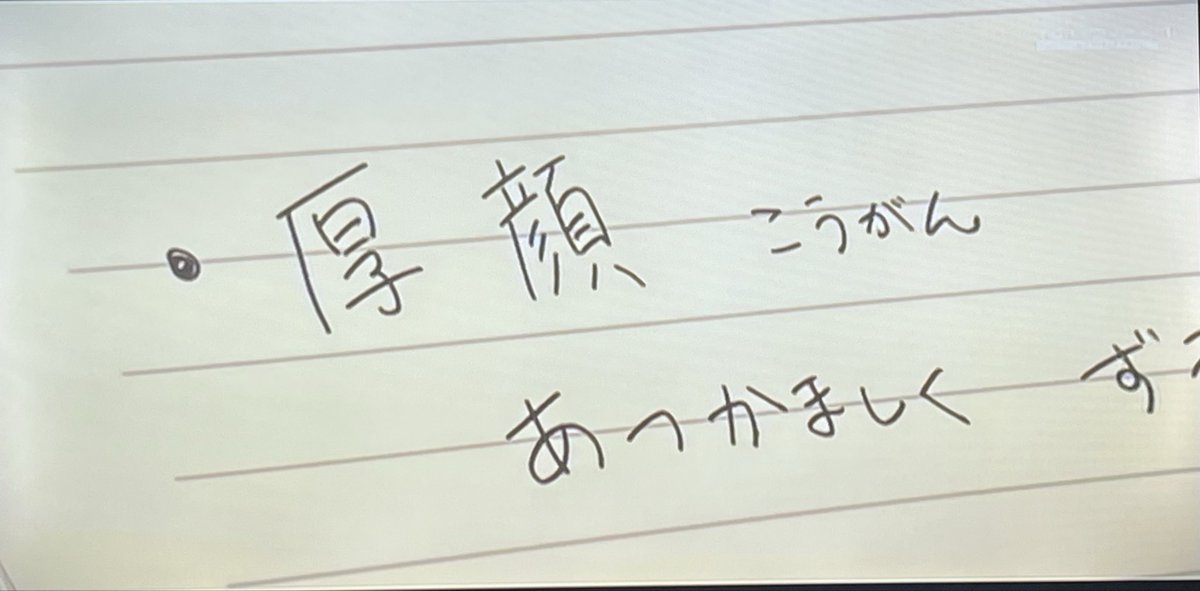 ・厚顔 こうがん
あつかましく ず